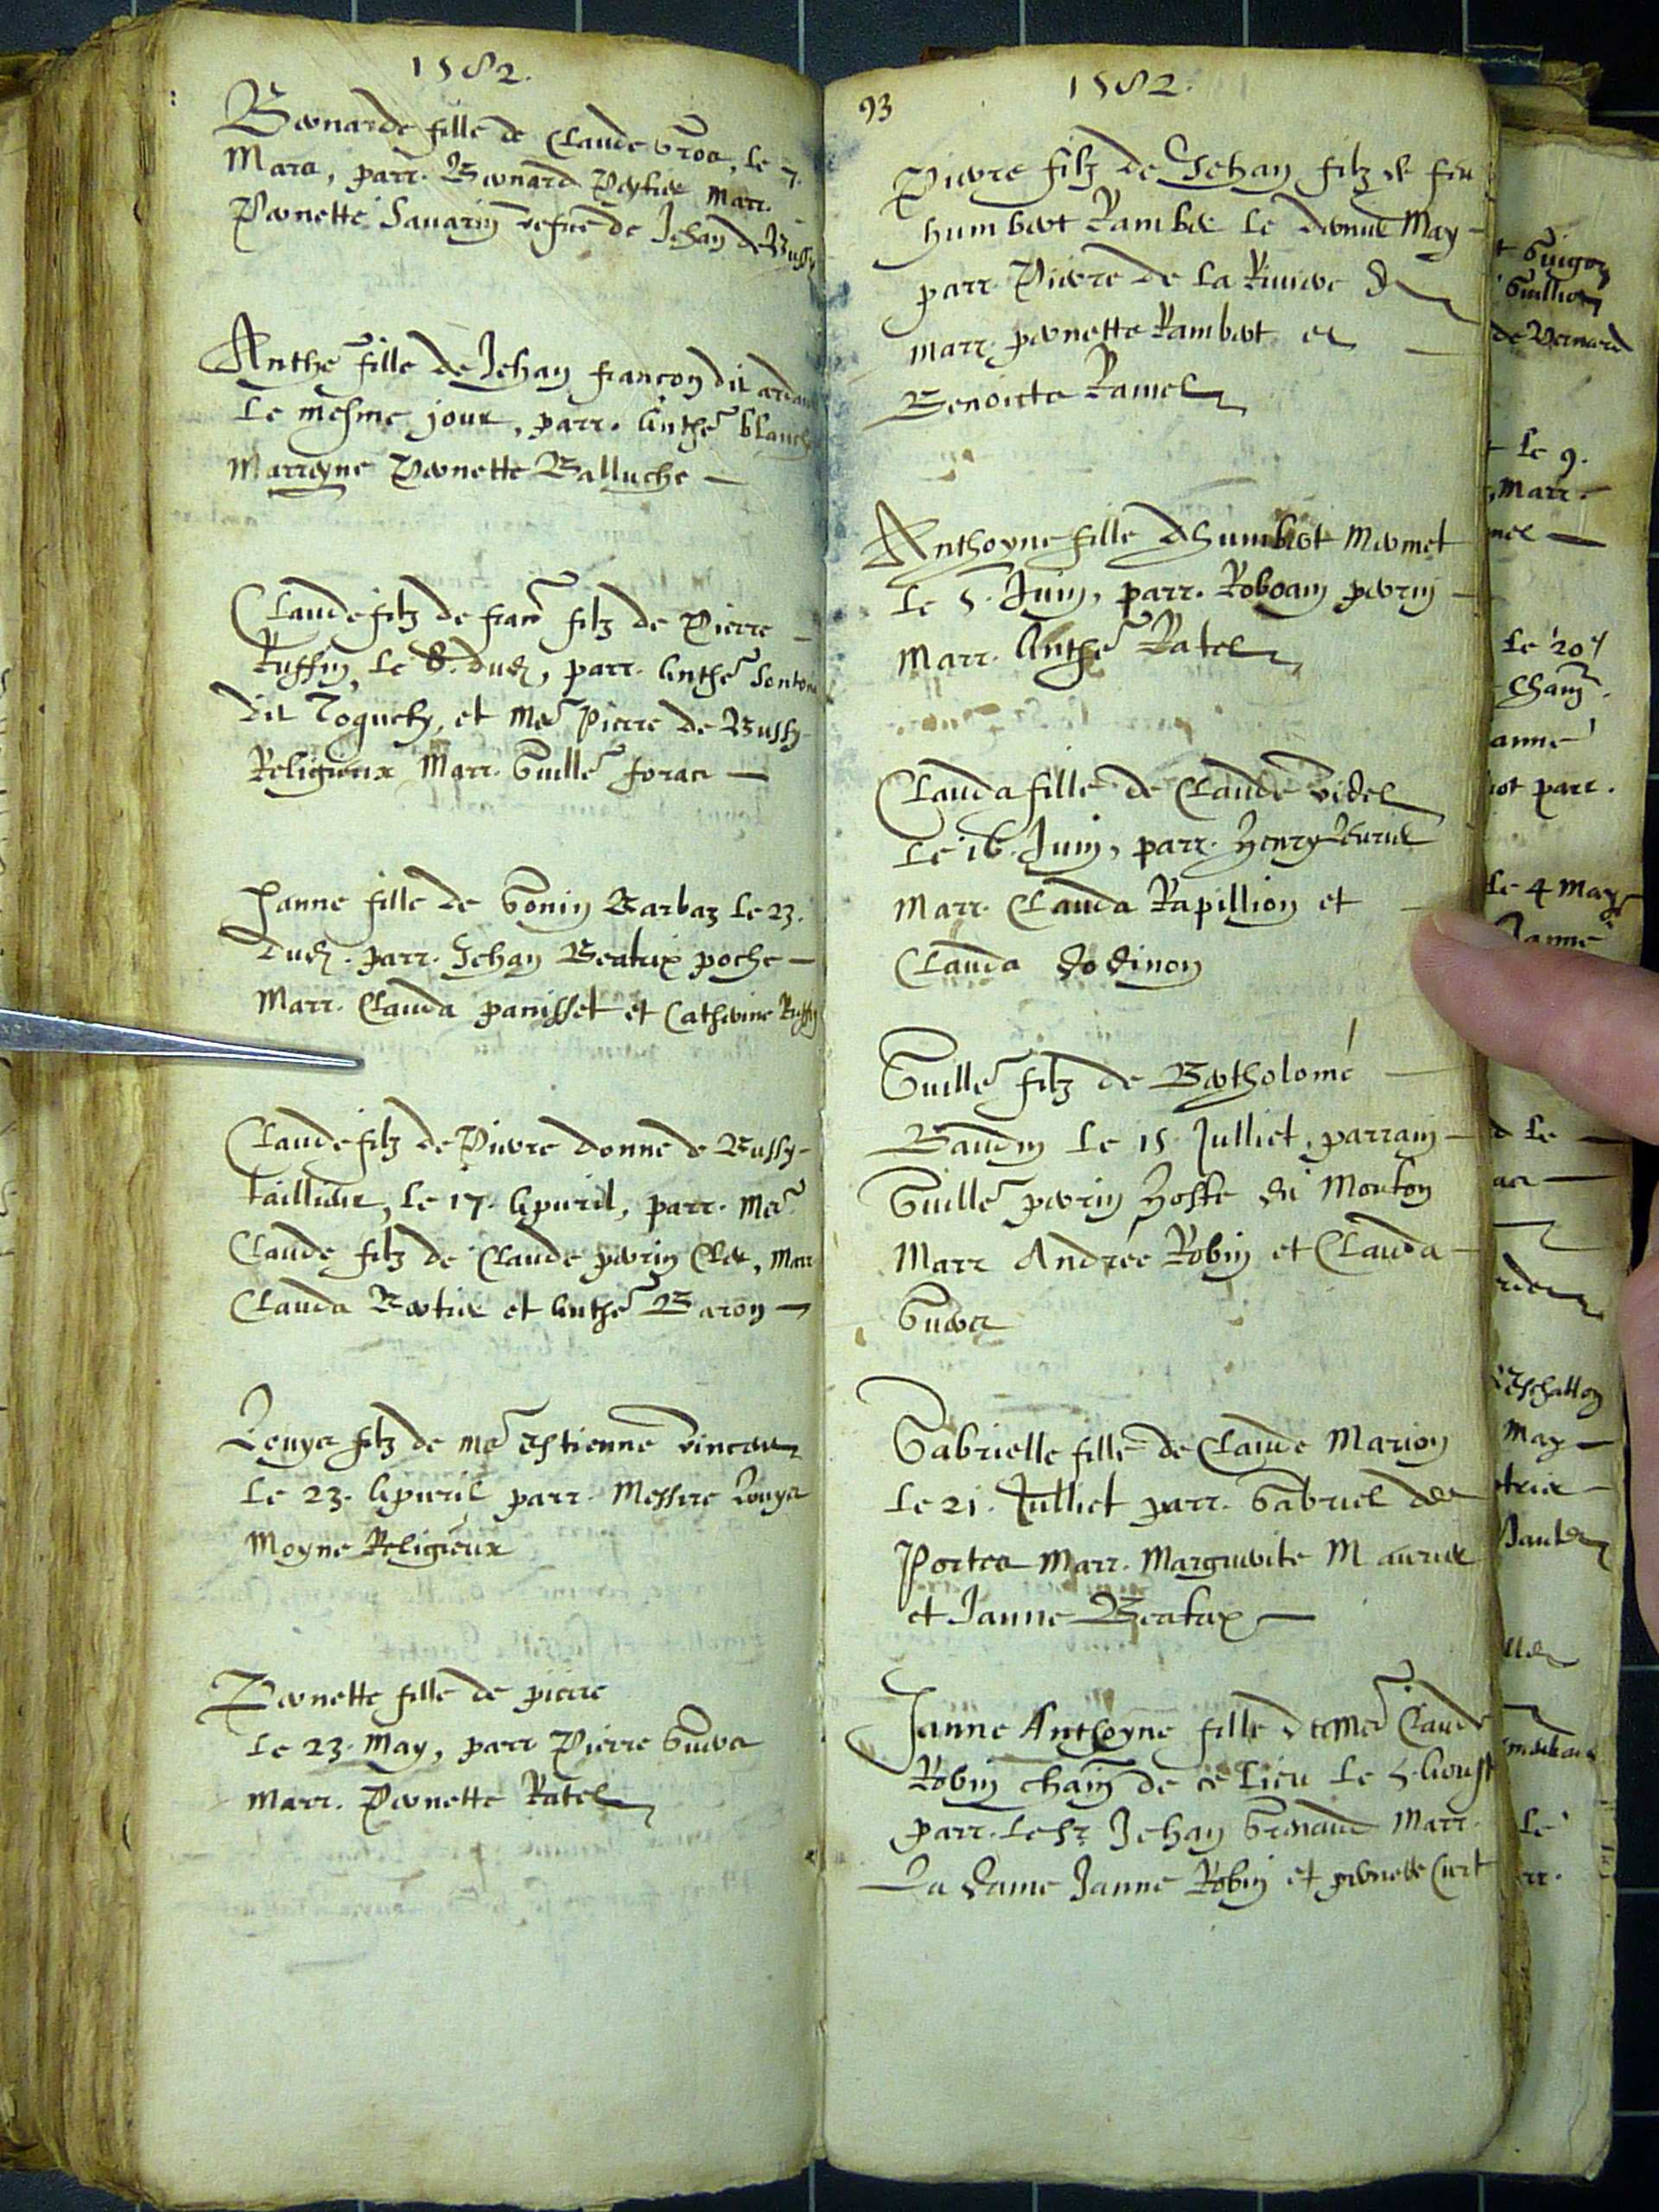 1582.
Bernarde fille de Claude Vroz, le 7.
Mars, parr. Bernard Marr.
Pernette Savarin vefue de Jehan de Bussy
Anthe fille de Jehan françon dit
Le mesme jour, parr. Anthe blanch
Marreyne Pernette Balluche
Claude filz de franc filz de Pierre
Ruffin, le 8. dud, parr. Anthe
dit Toguely, et Mre Pierre de Bussy
Religieux Marr. Guille foraz
Janne fille de Gonin Barbaz le 23.
dud. parr. Jehan Beatrix poche
Marr. Clauda panisset et Catherine Ruffin
Claude filz de Pierre donne de Bussy
taillieur, le 17. Apvril, parr. Mre
Claude filz de Claude perrin Clerc, Marr
Clauda Bertier et Anthe Baron
Louys filz de Mre Estienne
Le 23. Apvril parr. Messire Louys
Moyne Religieux
Pernette fille de pierre
Le 23. May, parr Pierre Guerra
Marr. Pernette Ratel
93
1582.
Pierre filz de Jehan filz de feu
humbert Rambert Le dernier May
parr. Pierre de la Riviere
Marr. pernette Rambert et
Benoicte Ramel
Anthoyne fille dhumbert Mermet
Le 5. Juin, parr. Roboam perrin
Marr. Anthe Ratel
Clauda fille de Claude Videl
Le 16. Juin, parr. Henry
Marr. Clauda Rapillion et
Clauda Dodinon
Guille filz de Bartholome
Baudin Le 15 Julliet, parrain
Guille perrin Hoste du Mouton
Marr Andrée Robin et Clauda
Guerra
Gabrielle fille de Claude Marion
Le 21. Julliet parr. Gabriel des
Portes Marr. Marguerite Maurier
et Janne Beatrix
Janne Anthoyne fille de Mre Claude
Robin chain de ce lieu Le 5. Aoust
parr. le sr Jehan Grenaud Marr.
La dame Janne Robin et pernette Curt
Guigon
Guillion
de Bernard
Le 9.
Marr.
Le 20
Chain.
anne
parr.
Le 4 May
Janne
Le
Eschallon
May
Le